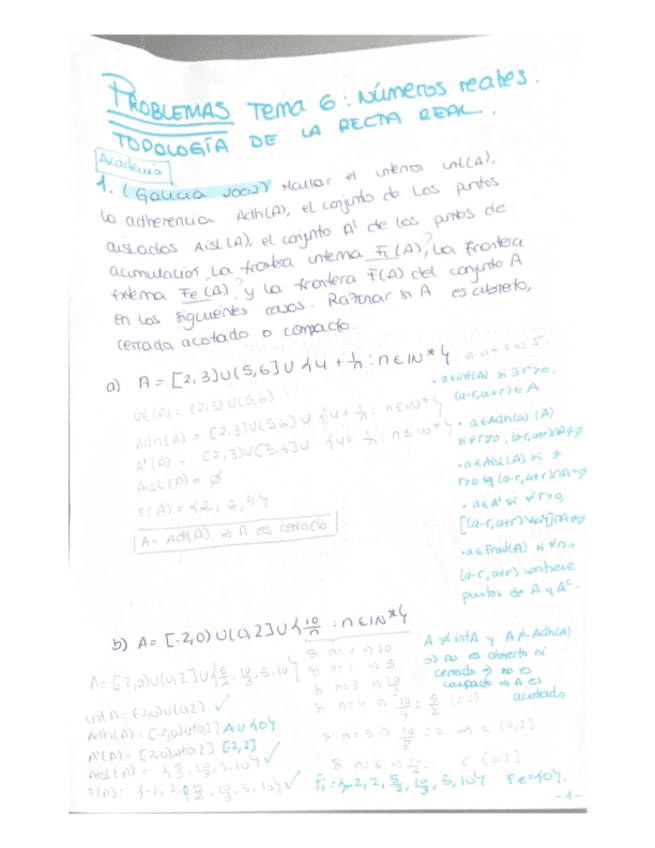 PROBLEMAS Tema 6: Números reales.
TOPOLOGÍA DE LA RECTA REAL.
Academia
1. (Galicia 2002) Hallar el interior int(A),
la adherencia Adh(A), el conjunto de los puntos
aislados Aisl(A), el conjunto A' de los puntos de
acumulación, la frontera interna Fi(A)?, la frontera
externa Fe(A)? y la frontera F(A) del conjunto A
en los siguientes casos. Razonar si A es abierto,
cerrado, acotado o compacto.
a) A = [2,3)∪(5,6]∪{4 + 1/n : n∈IN*}
si n=1 => 5.
int(A) = (2,3)∪(5,6)
Adh(A) = [2,3)∪(5,6]∪{4+1/n : n∈IN*}
A'(A) = [2,3)∪[5,6]∪{4+1/n : n∈IN*}
Aisl(A) = ∅
F(A) = {2,6,4}
A = Adh(A) => A es cerrado
• a∈int(A) si ∃r>0,
(a-r,a+r)⊂A
• a∈Adh(A)
si ∀r>0, (a-r,a+r)∩A≠∅
• a∈Aisl(A) si ∃
r>0 tq (a-r,a+r)∩A=∅
• a∈A' si ∀r>0,
• a∈Front(A) si ∀r>0
(a-r,a+r) contiene
puntos de A y Aᶜ.
b) A = [-2,0)∪(0,2]∪{10/n : n∈IN*}
A = [-2,0)∪(0,2]∪{5/2, 10/3, 5, 10}
int A = (-2,0)∪(0,2) ✓
Adh(A) = [-2,0]∪[0,2] A∪{0}
A'(A) = [-2,0]∪[0,2] [-2,2]
Aisl(A) = {5/2, 10/3, 5, 10} ✓
F(A) = {-2,2,0,5/2,10/3,5,10} ✓
si n=1 => 10
si n=2 => 5
si n=3 => 10/3
si n=4 => 10/4 = 5/2
si n=5 => 10/5 = 2 => ∈ (0,2]
si n=6 => 10/6... ∈ (0,2]
A ≠ intA y A ≠ Adh(A)
=> no es abierto ni
cerrado => no es
compacto => A es
acotado
Fi = {-2,2,5/2,10/3,5,10} Fe={0}.
-1-